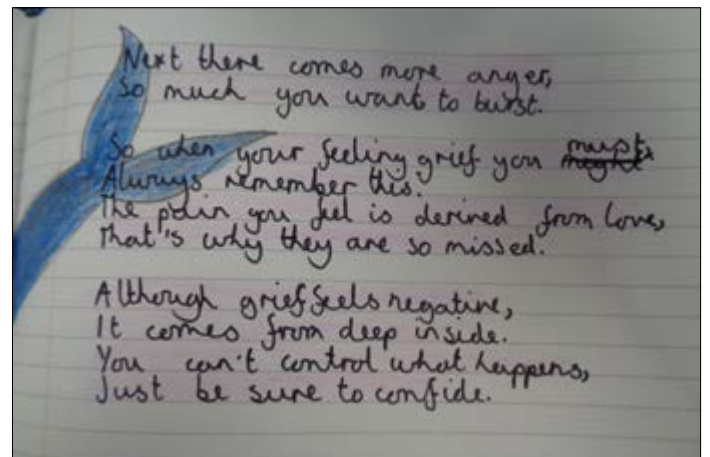 Next there comes more anger,
So much you want to burst.
So when your feeling grief you must,
Always remember this.
The pain you feel is derived from love,
That's why they are so missed.
Although grief feels negative,
It comes from deep inside.
You can't control what happens,
Just be sure to confide.